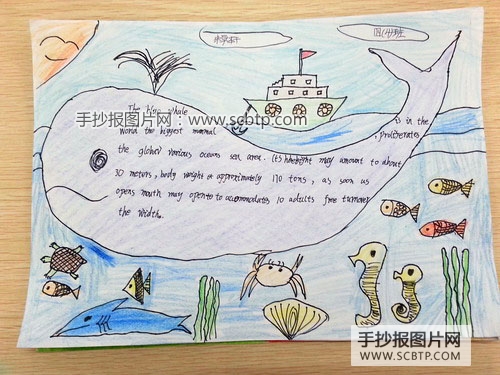 四(4)班
手抄报图片网:www.scbtp.com
The blue whale is in the
world the biggest mammal , proliferates
the global various oceans sea area. Its height may amount to about
30 meters, body weight or approximately 170 tons, as soon as
opens mouth may open to accommodates 10 adults free turnover
the width.
手抄报图片网
WWW.SCBTP.COM